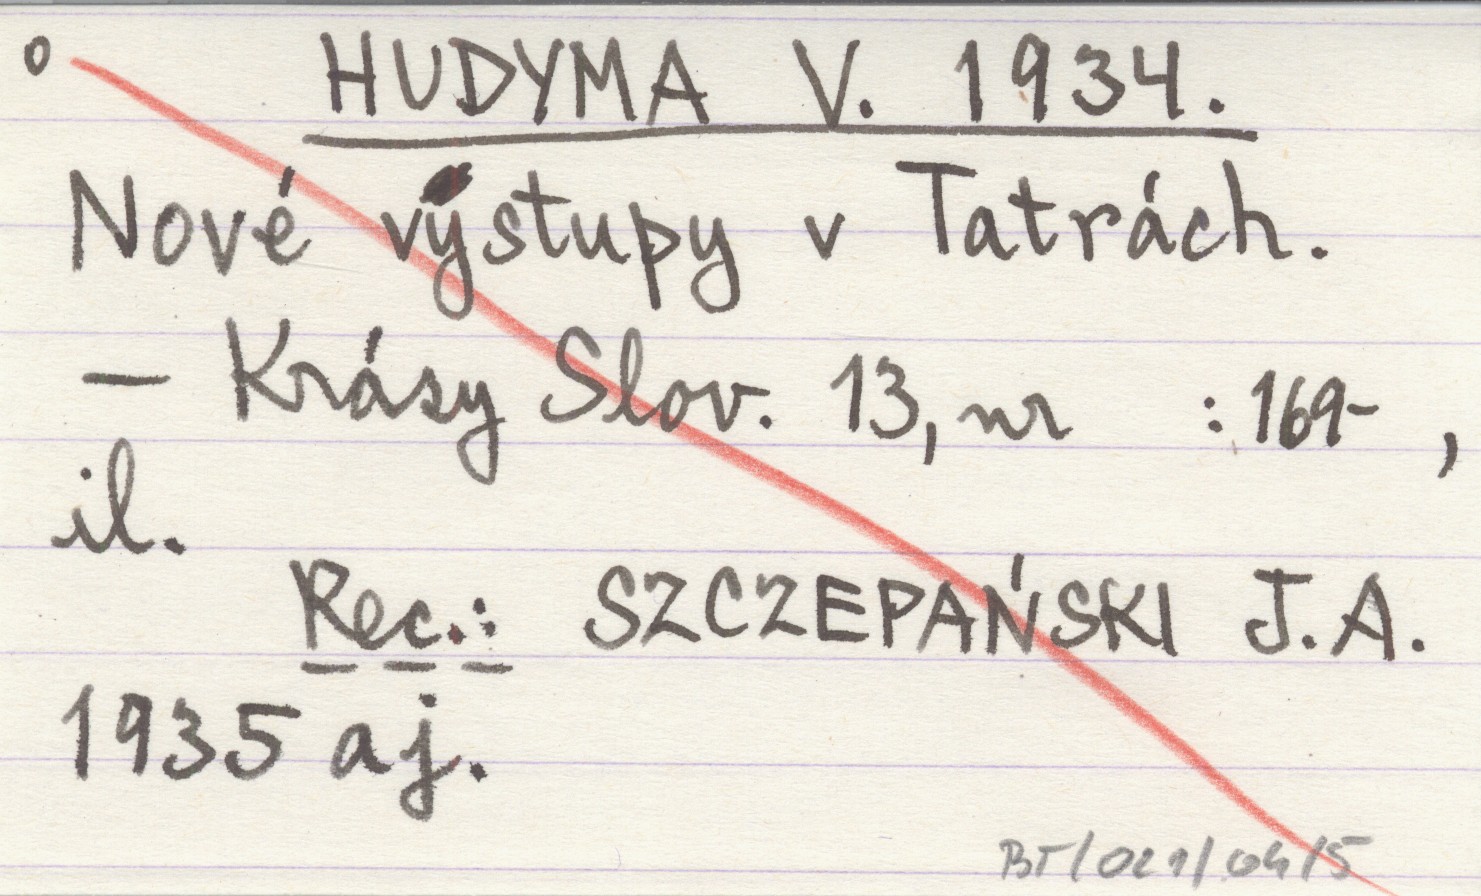 o HUDYMA V. 1934.
Nové výstupy v Tatrách.
– Krásy Slov. 13, nr : 169- ,
il.
Rec.: SZCZEPAŃSKI J.A.
1935 aj.
BT/021/04/5